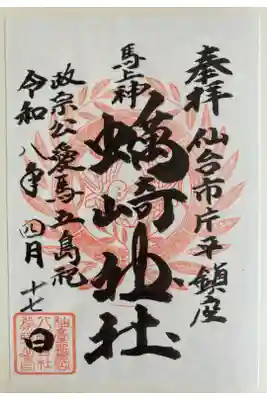 奉拝 仙台市片平鎮座
馬上神
蠣崎神社
政宗公愛馬五島祀
令和八年四月十七日